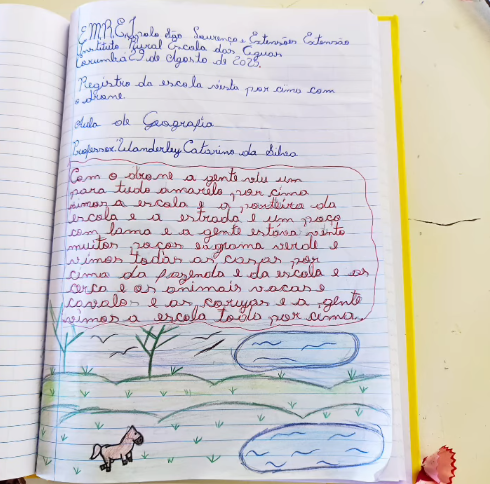 E.M.R.E.I. Polo São Lourenço e Extensões Extensão
Instituto Rural Escola das Águas
Corumbá 29 de Agosto de 2025.
Registro da escola vista por cima com
o drone
Aula de Geografia
Professor: Wanderley Caterino da Silva
Com o drone a gente viu um
para tudo amarelo, por cima
vimos a escola e a porteira da
escola e a estrada e um poço
com lama e a gente estava perto
muitos poços e grama verde e
vimos todas as casas por
cima da fazenda e da escola e as
cerca e os animais vacas e
cavalos e as corujas e a gente
vimos a escola toda por cima.